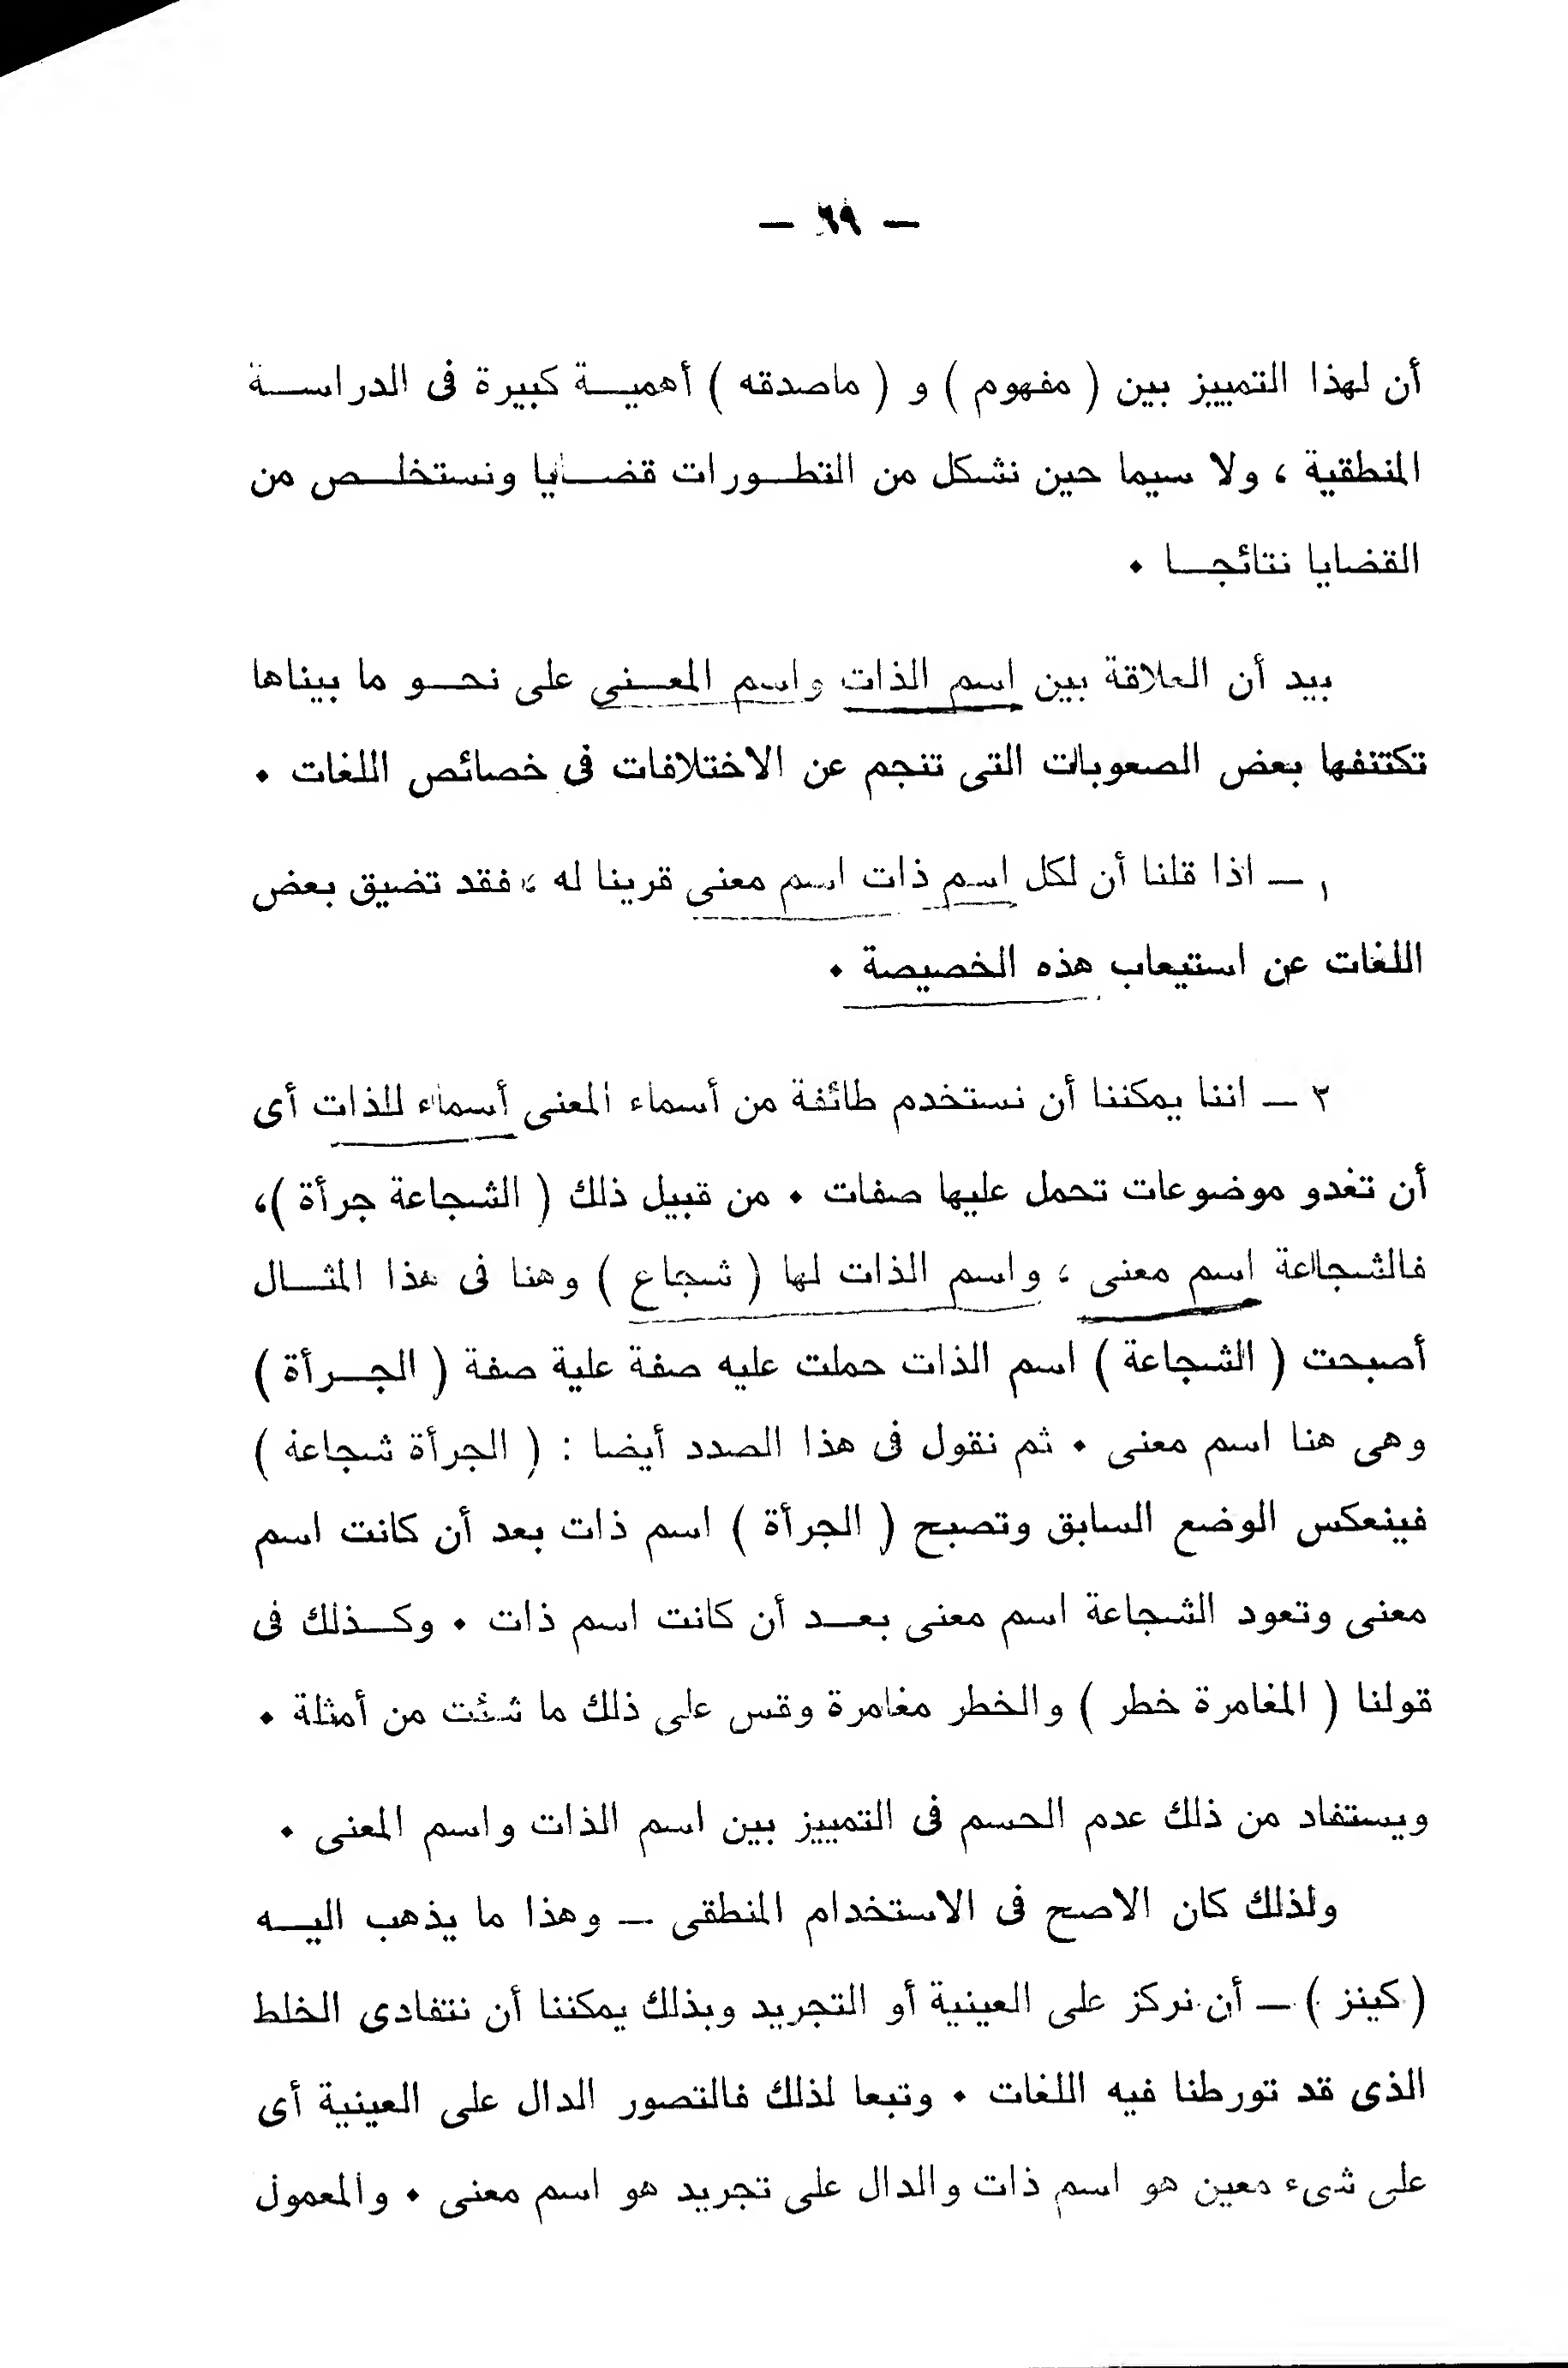 — ٦٩ —
أن لهذا التمييز بين ( مفهوم ) و ( ماصدقه ) أهمية كبيرة فى الدراسة
المنطقية ، ولا سيما حين نشكل من التطورات قضايا ونستخلص من
القضايا نتائجا ٠
بيد أن العلاقة بين اسم الذات واسم المعنى على نحو ما بيناها
تكتنفها بعض الصعوبات التى تنجم عن الاختلافات فى خصائص اللغات ٠
١ — اذا قلنا أن لكل اسم ذات اسم معنى قرينا له ، فقد تضيق بعض
اللغات عن استيعاب هذه الخصيصة ٠
٢ — اننا يمكننا أن نستخدم طائفة من أسماء المعنى أسماء للذات أى
أن تغدو موضوعات تحمل عليها صفات ٠ من قبيل ذلك ( الشجاعة جرأة )،
فالشجاعة اسم معنى ، واسم الذات لها ( شجاع ) وهنا فى هذا المثال
أصبحت ( الشجاعة ) اسم الذات حملت عليه صفة علية صفة ( الجرأة )
وهى هنا اسم معنى ٠ ثم نقول فى هذا الصدد أيضا : ( الجرأة شجاعة )
فينعكس الوضع السابق وتصبح ( الجرأة ) اسم ذات بعد أن كانت اسم
معنى وتعود الشجاعة اسم معنى بعد أن كانت اسم ذات ٠ وكذلك فى
قولنا ( المغامرة خطر ) والخطر مغامرة وقس على ذلك ما شئت من أمثلة ٠
ويستفاد من ذلك عدم الحسم فى التمييز بين اسم الذات واسم المعنى ٠
ولذلك كان الاصح فى الاستخدام المنطقى — وهذا ما يذهب اليه
( كينز ) — أن نركز على العينية أو التجريد وبذلك يمكننا أن نتفادى الخلط
الذى قد تورطنا فيه اللغات ٠ وتبعا لذلك فالتصور الدال على العينية أى
على شىء معين هو اسم ذات والدال على تجريد هو اسم معنى ٠ والمعمول